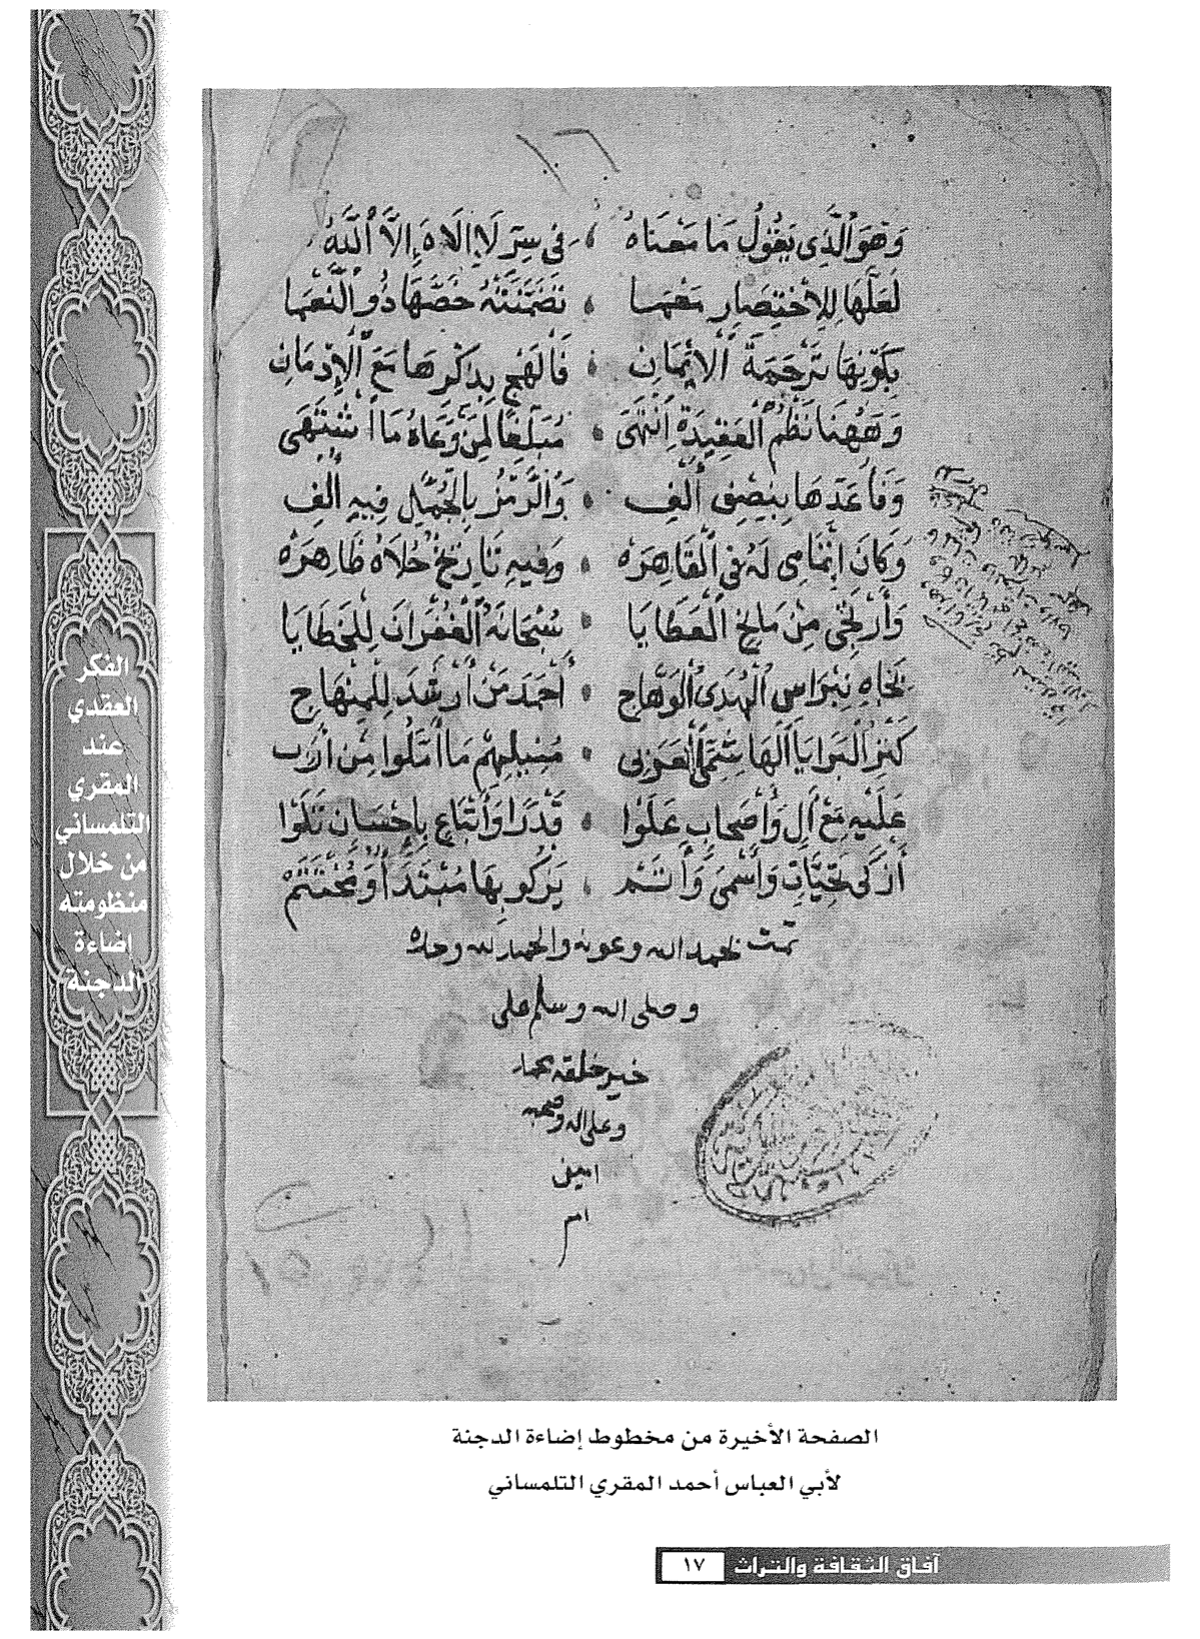 وَهُوَ الَّذِي يَقُولُ مَا مَعْنَاهُ ، فِي سِرِّ لَا إِلَاهَ إِلَّا اللَّهُ
لَعَلَّهَا لِلِاخْتِصَارِ مَعْهَمَا ، تَضَمَّنَتْهُ خَصَّهَا ذُو النُّعْمَا
بِكَوْنِهَا تَرْجَمَةَ الْإِيمَانِ ، فَالْهَجْ بِذِكْرِهَا مَعَ الْإِدْمَانِ
وَهَهُنَا نَظْمُ الْعَقِيدَةِ انْتَهَى ، مُبَلِّغًا لِمَنْ وَعَاهُ مَا اشْتَهَى
وَفَا عَدّهَا بِنِصْفِ أَلْفِ ، وَالرَّمْزُ بِالْجُمَّلِ فِيهِ أُلِفِ
وَكَانَ إِتْمَامِي لَهُ فِي الْقَاهِرَهْ ، وَفِيهِ تَارِيخُ حُلَاهُ ظَاهِرَهْ
وَأَرْتَجِي مِنْ مَانِحِ الْعَطَايَا ، سُبْحَانَهُ الْغُفْرَانَ لِلْخَطَايَا
بِجَاهِ نِبْرَاسِ الْهُدَى الْوَهَّاجِ ، أَحْمَدَ مَنْ أَرْشَدَ لِلْمِنْهَاجِ
كَنْزُ الْبَرَايَا الْهَاشِمِيُّ الْعَرَبِي ، مُنِيلِهِمْ مَا أَمَّلُوا مِنْ أَرَبِ
عَلَيْهِ مَعْ آلٍ وَأَصْحَابٍ عَلَوْا ، قَدْرًا وَأَتْبَاعٍ بِإِحْسَانٍ تَلَوْا
أَزْكَى تَحِيَّاتٍ وَأَسْمَى وَأَتَمْ ، يَزْكُو بِهَا مُبْتَدَأٌ وَمُخْتَتَمْ
تمت بحمد الله وعونه والحمد لله وحده
وصلى الله وسلم على
خير خلقه محمد
وعلى اله وصحبه
امين
الفكر
العقدي
عند
المقري
التلمساني
من خلال
منظومته
إضاءة
الدجنة
الصفحة الأخيرة من مخطوط إضاءة الدجنة
لأبي العباس أحمد المقري التلمساني
آفاق الثقافة والتراث ١٧